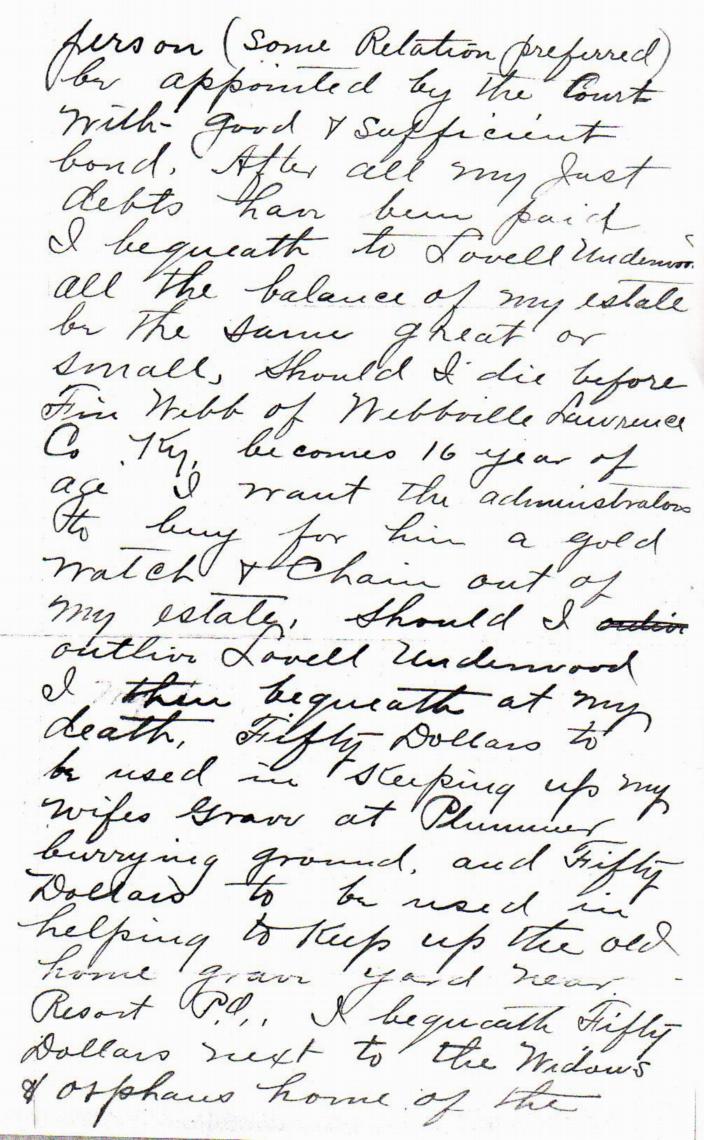 person (Some Relation preferred)
be appointed by the Court
with good & Sufficient
bond. After all my Just
debts have been paid
I bequeath to Lovell Underwoo
all the balance of my estate
be the same great or
small, Should I die before
Fin Webb of Webbville Lawrence
Co Ky, becomes 16 year of
age I want the administrators
to buy for him a gold
watch & Chain out of
my estate, Should I outliv
outlive Lovell Underwood
I then bequeath at my
death, Fifty Dollars to
be used in Keeping up my
wifes Grave at Plummer
burrying ground, and Fifty
Dollars to be used in
helping to Keep up the old
home grave yard near
Resort P.O., I bequeath Fifty
Dollars next to the Widows
& orphans home of the